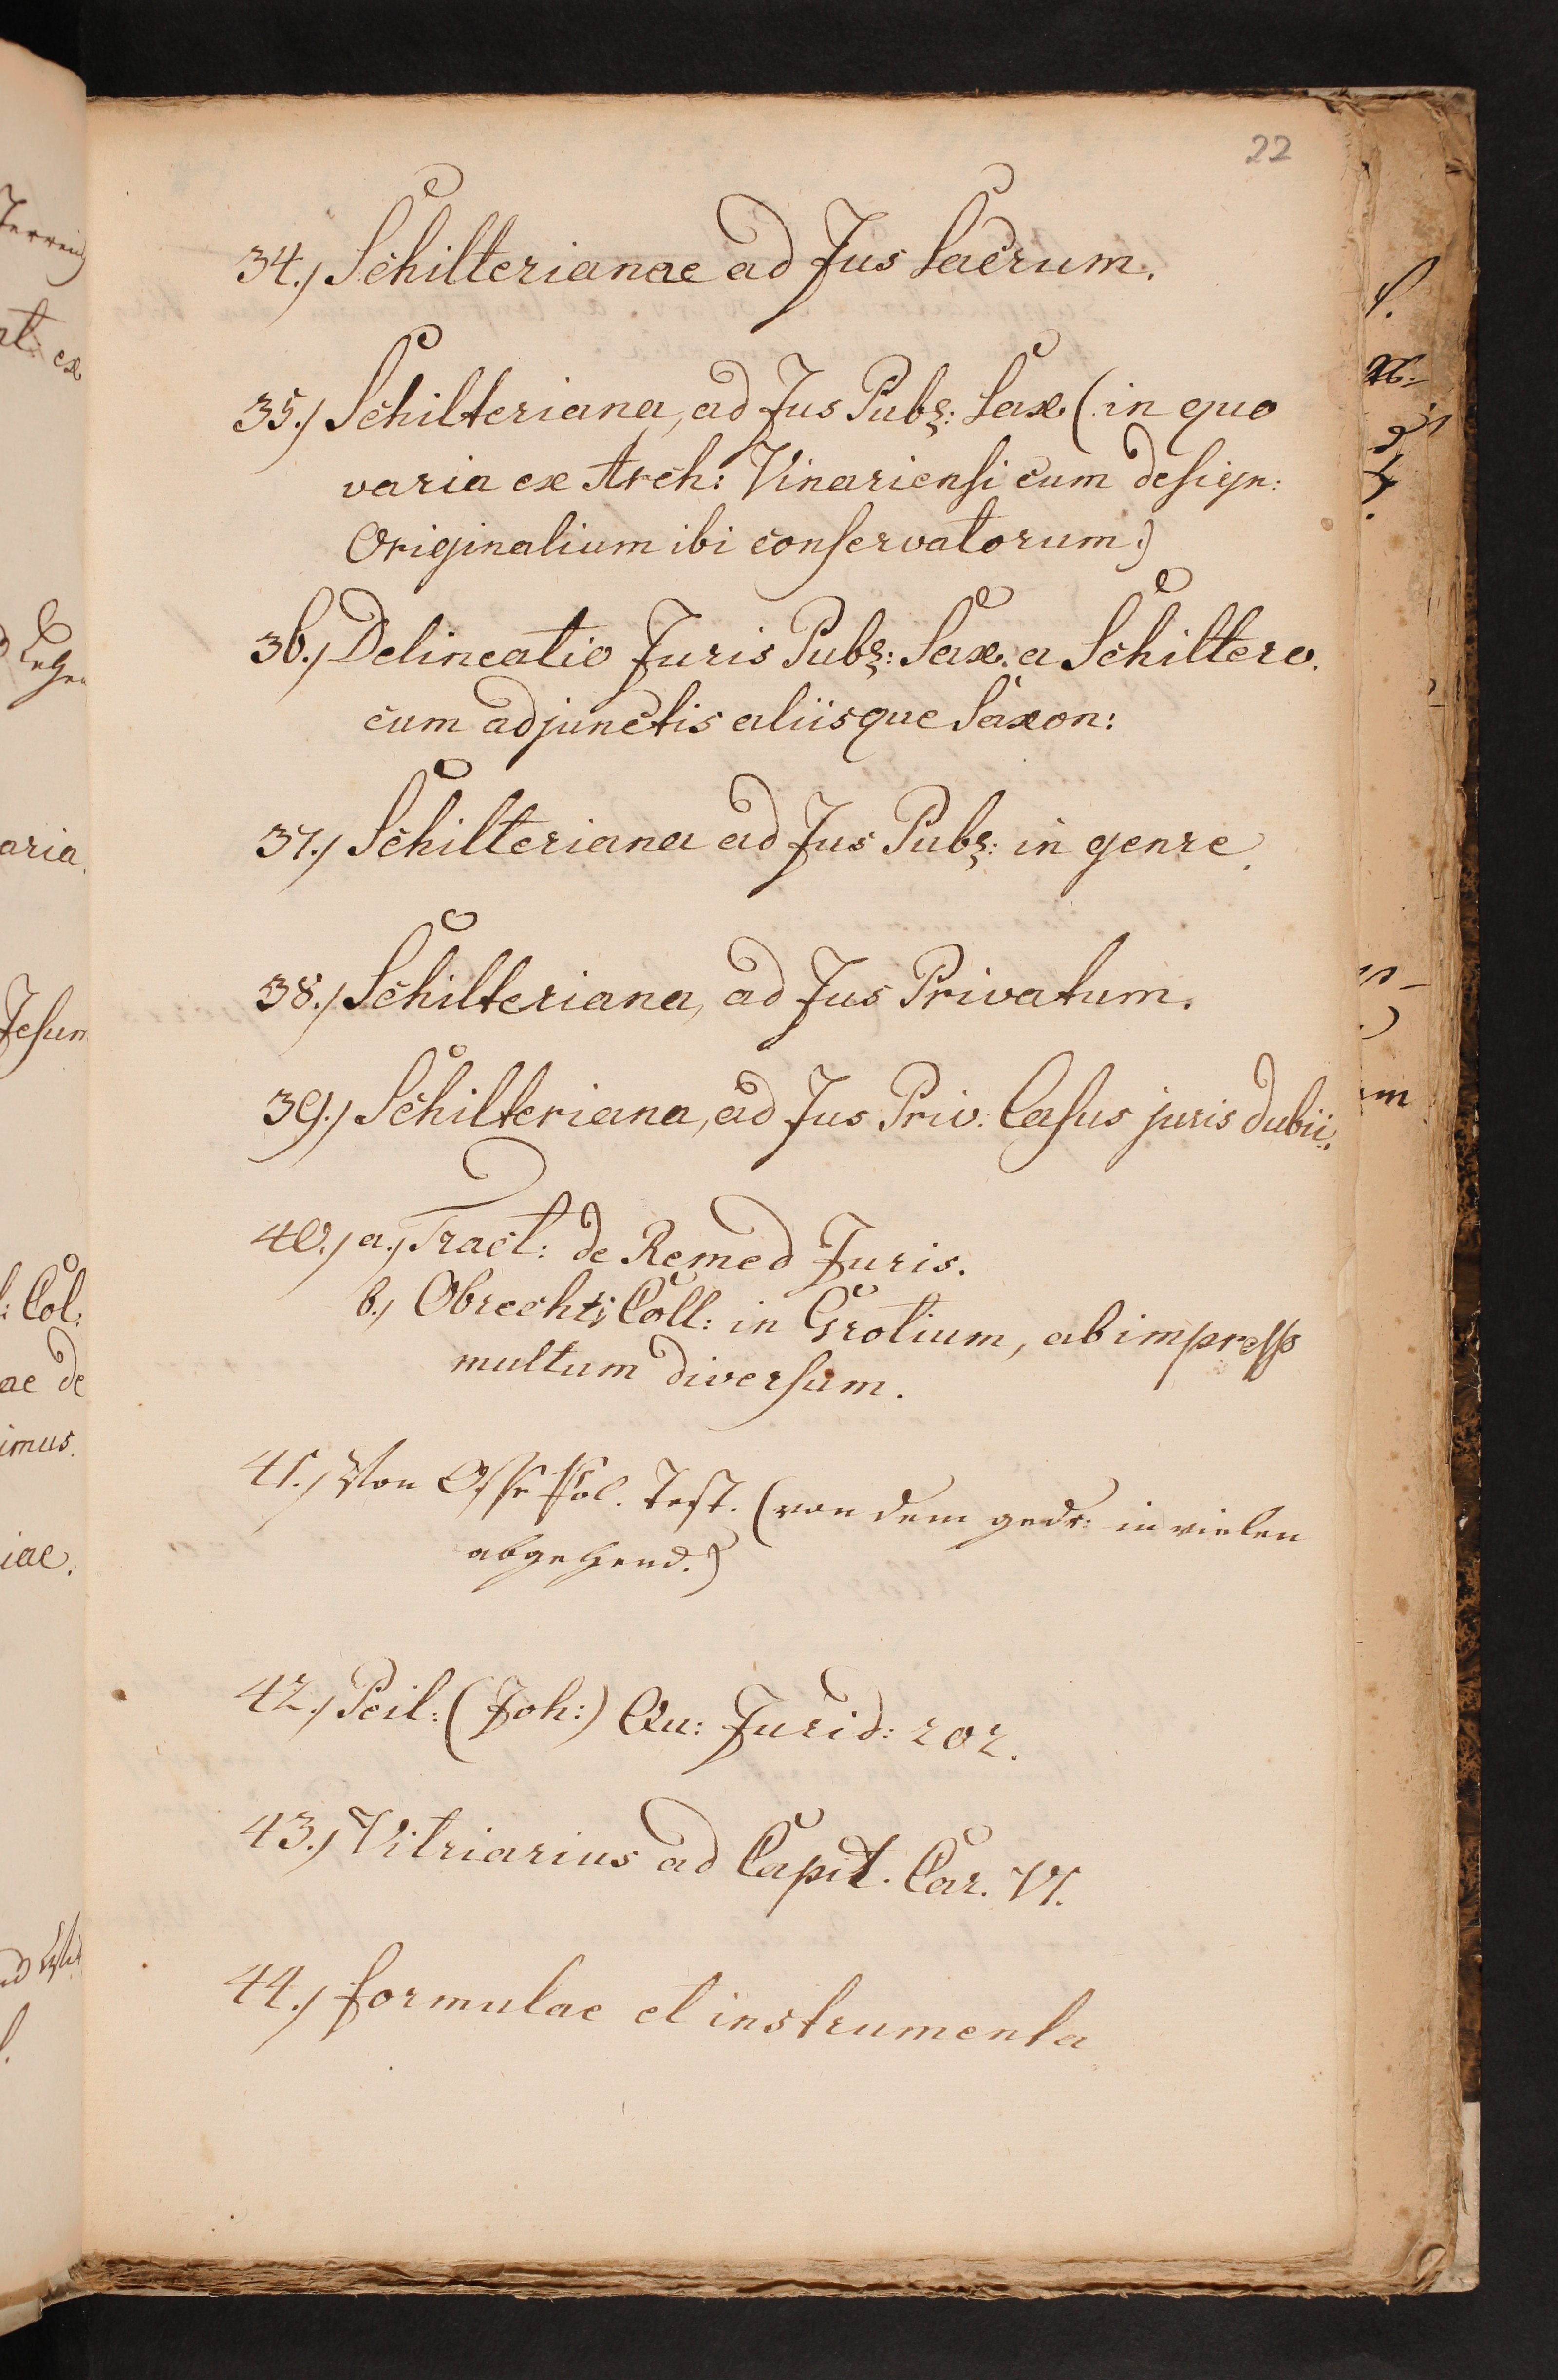 22
34.) Schilterianae ad Jus Sacrum.
35.) Schilteriana, ad Jus Publ: Sax (in quo
varia ex Arch: Vinariensi cum design:
Originalium ibi conservatorum.)
36.) Delineatio Juris Publ: Sax. a Schiltero.
cum adjunctis aliisque Saxon:
37.) Schilteriana ad Jus Publ: in genre.
38.) Schilteriana, ad Jus Privatum.
39.) Schilteriana, ad Jus Priv. Casus juris dubii.
40.) a.) Tract: de Remed Juris.
b.) Obrechti Coll: in Grotium, ab impresso
multum diversum.
41.) Von Osse Pol. Test. (von dem gedr: in vielen
abgehend.)
42.) Peil: (Joh:) Qu: Jurid: 202.
43.) Vitriarius ad Capit. Car. VI.
44.) formulae et instrumenta